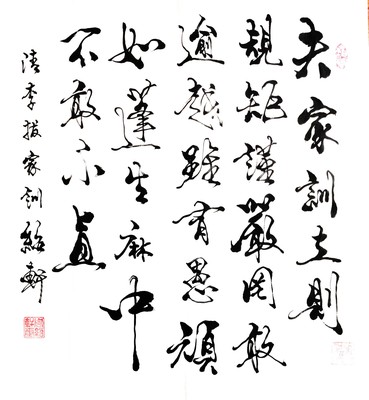 夫家訓立則
規矩謹嚴罔敢
逾越雖有愚頑
如蓬生麻中
不敢不直
清李拔家訓紹軒